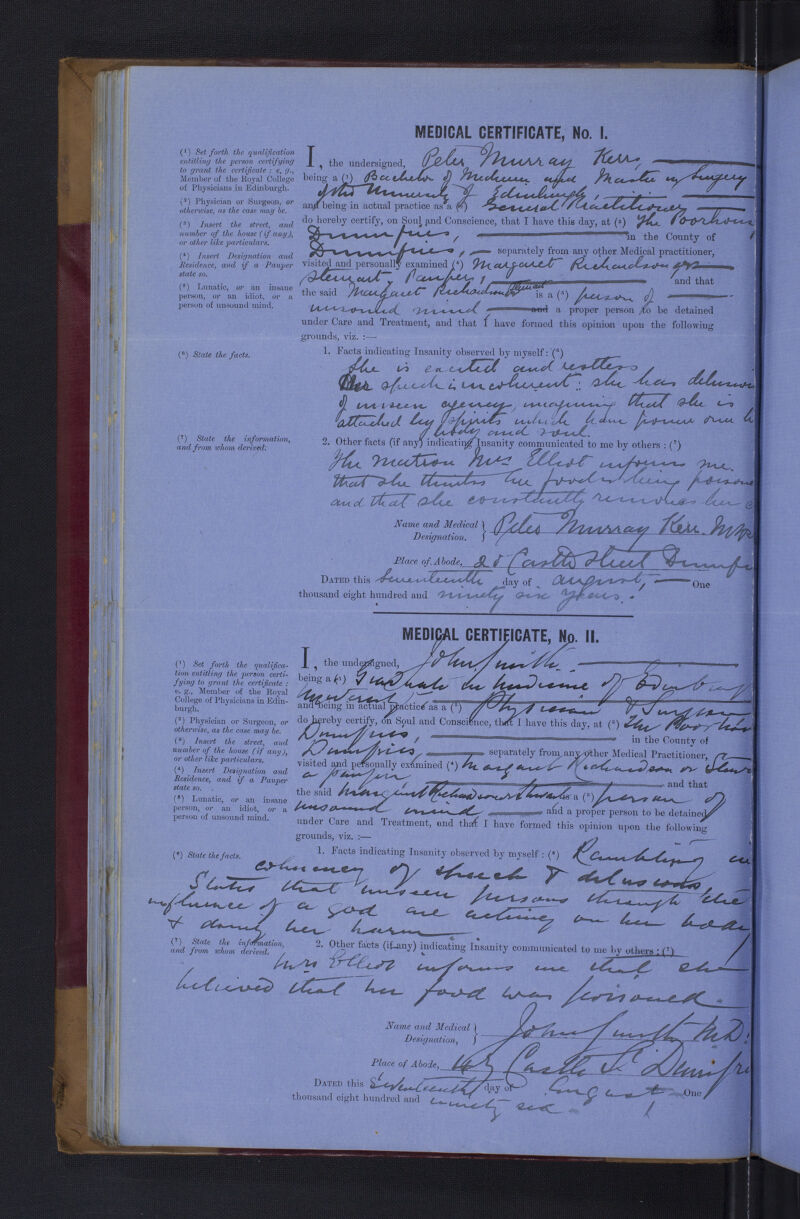 MEDICAL CERTIFICATE, No. I.
(¹) Set forth the qualification
entitling the person certifying
to grant the certificate : e. g.,
Member of the Royal College
of Physicians in Edinburgh.
(²) Physician or Surgeon, or
otherwise, as the case may be.
(³) Insert the street, and
number of the house (if any),
or other like particulars.
(⁴) Insert Designation and
Residence, and if a Pauper
state so.
(⁵) Lunatic, or an insane
person, or an idiot, or a
person of unsound mind.
(⁶) State the facts.
(⁷) State the information,
and from whom derived.
I, the undersigned, Peter Murray Kerr,
being a (¹) Bachelor of Medicine and Master in Surgery
of the University of Edinburgh
and being in actual practice as a (²) General Practitioner
do hereby certify, on Soul and Conscience, that I have this day, at (³) The Poorhouse
Dumfries, in the County of
Dumfries, separately from any other Medical practitioner,
visited and personally examined (⁴) Margaret Richardson or
Stewart, Pauper, and that
the said Margaret Richardson or Stewart is a (⁵) person of
unsound mind and a proper person to be detained
under Care and Treatment, and that I have formed this opinion upon the following
grounds, viz. :—
1. Facts indicating Insanity observed by myself : (⁶)
She is excited and restless
Her speech is incoherent : she has delusions
of unseen agency, imagining that she is
attacked by spirits which have power over h
body and soul.
2. Other facts (if any) indicating Insanity communicated to me by others : (⁷)
The Matron Mrs Elliot informs me
that she thinks her food is being poisone
and that she constantly removes her
Name and Medical Designation. Peter Murray Kerr M.B.
Place of Abode, Castle Street Dumfr
DATED this Seventeenth day of August, One
thousand eight hundred and ninety six years.
MEDICAL CERTIFICATE, No. II.
(¹) Set forth the qualifica-
tion entitling the person certi-
fying to grant the certificate :
e. g., Member of the Royal
College of Physicians in Edin-
burgh.
(²) Physician or Surgeon, or
otherwise, as the case may be.
(³) Insert the street, and
number of the house (if any),
or other like particulars.
(⁴) Insert Designation and
Residence, and if a Pauper
state so.
(⁵) Lunatic, or an insane
person, or an idiot, or a
person of unsound mind.
(⁶) State the facts.
(⁷) State the information,
and from whom derived.
I, the undersigned, John Smith
being a (¹) Graduate in Medicine of Edinburgh
University
and being in actual practice as a (²) Physician & Surgeon
do hereby certify, on Soul and Conscience, that I have this day, at (³) The Poorhou
Dumfries, in the County of
Dumfries, separately from any other Medical Practitioner,
visited and personally examined (⁴) Margaret Richardson or Stewa
a pauper and that
the said Margaret Richardson or Stewart is a (⁵) person of
unsound mind and a proper person to be detained
under Care and Treatment, and that I have formed this opinion upon the following
grounds, viz. :—
1. Facts indicating Insanity observed by myself : (⁶) Rambling in
coherency of speech & delusions,
States that unseen persons through the
influence of a god are acting on her body
& doing her harm
2. Other facts (if any) indicating Insanity communicated to me by others : (⁷)
Mrs Elliot informs me that she
believed that her food was poisoned.
Name and Medical Designation, John Smith M.D.
Place of Abode, Castle St Dumfri
DATED this Seventeenth day of August One
thousand eight hundred and ninety six